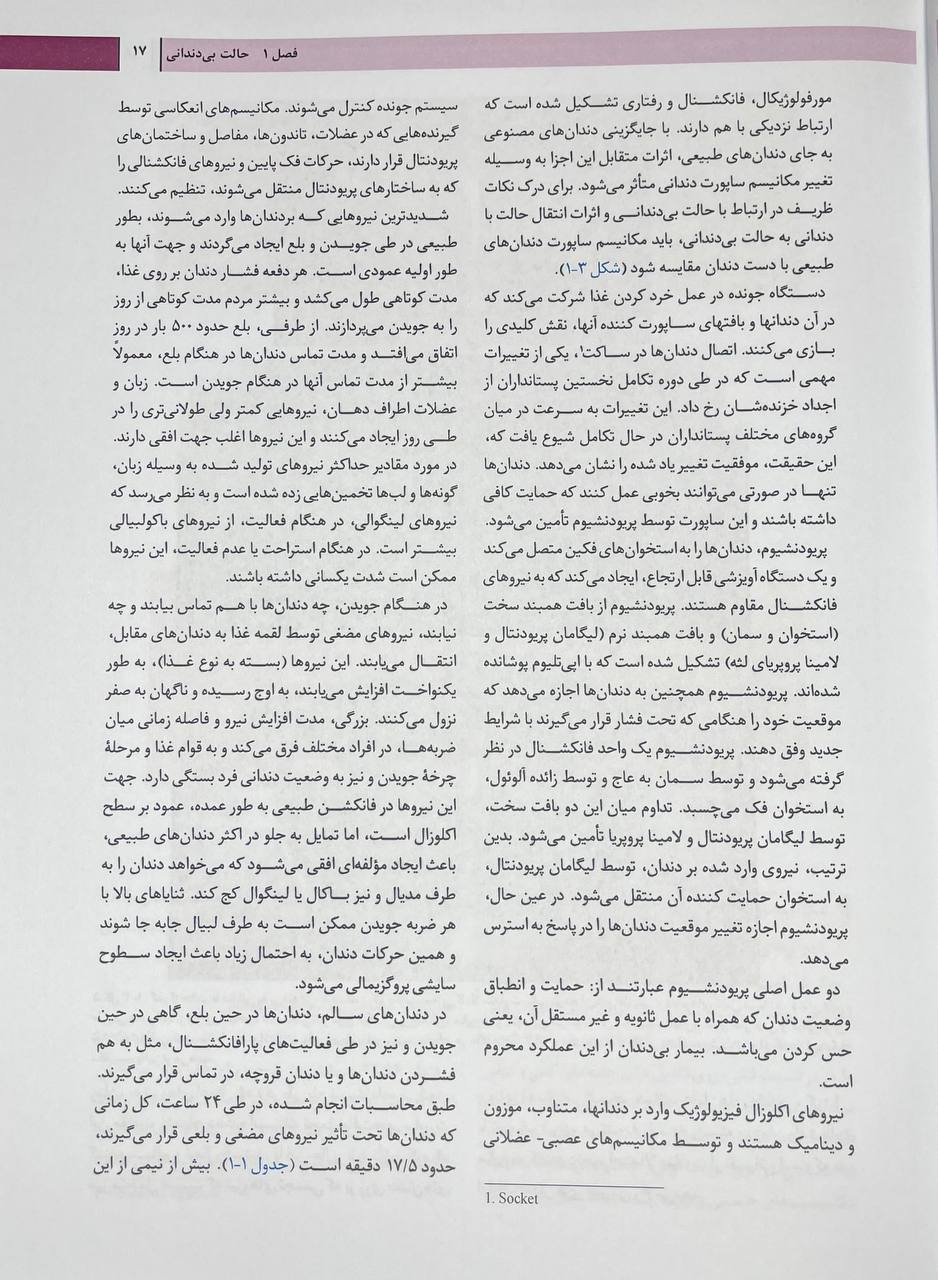 فصل ۱ حالت بی‌دندانی ۱۷
مورفولوژیکال، فانکشنال و رفتاری تشکیل شده است که
ارتباط نزدیکی با هم دارند. با جایگزینی دندان‌های مصنوعی
به جای دندان‌های طبیعی، اثرات متقابل این اجزا به وسیله
تغییر مکانیسم ساپورت دندانی متأثر می‌شود. برای درک نکات
ظریف در ارتباط با حالت بی‌دندانی و اثرات انتقال حالت با
دندانی به حالت بی‌دندانی، باید مکانیسم ساپورت دندان‌های
طبیعی با دست دندان مقایسه شود (شکل ۳-۱).
دستگاه جونده در عمل خرد کردن غذا شرکت می‌کند که
در آن دندانها و بافتهای ساپورت کننده آنها، نقش کلیدی را
بازی می‌کنند. اتصال دندان‌ها در ساکت۱، یکی از تغییرات
مهمی است که در طی دوره تکامل نخستین پستانداران از
اجداد خزنده‌شان رخ داد. این تغییرات به سرعت در میان
گروه‌های مختلف پستانداران در حال تکامل شیوع یافت که،
این حقیقت، موفقیت تغییر یاد شده را نشان می‌دهد. دندان‌ها
تنها در صورتی می‌توانند بخوبی عمل کنند که حمایت کافی
داشته باشند و این ساپورت توسط پریودنشیوم تأمین می‌شود.
پریودنشیوم، دندان‌ها را به استخوان‌های فکین متصل می‌کند
و یک دستگاه آویزشی قابل ارتجاع، ایجاد می‌کند که به نیروهای
فانکشنال مقاوم هستند. پریودنشیوم از بافت همبند سخت
(استخوان و سمان) و بافت همبند نرم (لیگامان پریودنتال و
لامینا پروپریای لثه) تشکیل شده است که با اپی‌تلیوم پوشانده
شده‌اند. پریودنشیوم همچنین به دندان‌ها اجازه می‌دهد که
موقعیت خود را هنگامی که تحت فشار قرار می‌گیرند با شرایط
جدید وفق دهند. پریودنشیوم یک واحد فانکشنال در نظر
گرفته می‌شود و توسط سمان به عاج و توسط زائده آلوئول،
به استخوان فک می‌چسبد. تداوم میان این دو بافت سخت،
توسط لیگامان پریودنتال و لامینا پروپریا تأمین می‌شود. بدین
ترتیب، نیروی وارد شده بر دندان، توسط لیگامان پریودنتال،
به استخوان حمایت کننده آن منتقل می‌شود. در عین حال،
پریودنشیوم اجازه تغییر موقعیت دندان‌ها را در پاسخ به استرس
می‌دهد.
دو عمل اصلی پریودنشیوم عبارتند از: حمایت و انطباق
وضعیت دندان که همراه با عمل ثانویه و غیر مستقل آن، یعنی
حس کردن می‌باشد. بیمار بی‌دندان از این عملکرد محروم
است.
نیروهای اکلوزال فیزیولوژیک وارد بر دندانها، متناوب، موزون
و دینامیک هستند و توسط مکانیسم‌های عصبی- عضلانی
1. Socket
سیستم جونده کنترل می‌شوند. مکانیسم‌های انعکاسی توسط
گیرنده‌هایی که در عضلات، تاندون‌ها، مفاصل و ساختمان‌های
پریودنتال قرار دارند، حرکات فک پایین و نیروهای فانکشنالی را
که به ساختارهای پریودنتال منتقل می‌شوند، تنظیم می‌کنند.
شدیدترین نیروهایی که بردندان‌ها وارد می‌شوند، بطور
طبیعی در طی جویدن و بلع ایجاد می‌گردند و جهت آنها به
طور اولیه عمودی است. هر دفعه فشار دندان بر روی غذا،
مدت کوتاهی طول می‌کشد و بیشتر مردم مدت کوتاهی از روز
را به جویدن می‌پردازند. از طرفی، بلع حدود ۵۰۰ بار در روز
اتفاق می‌افتد و مدت تماس دندان‌ها در هنگام بلع، معمولاً
بیشتر از مدت تماس آنها در هنگام جویدن است. زبان و
عضلات اطراف دهان، نیروهایی کمتر ولی طولانی‌تری را در
طی روز ایجاد می‌کنند و این نیروها اغلب جهت افقی دارند.
در مورد مقادیر حداکثر نیروهای تولید شده به وسیله زبان،
گونه‌ها و لب‌ها تخمین‌هایی زده شده است و به نظر می‌رسد که
نیروهای لینگوالی، در هنگام فعالیت، از نیروهای باکولبیالی
بیشتر است. در هنگام استراحت یا عدم فعالیت، این نیروها
ممکن است شدت یکسانی داشته باشند.
در هنگام جویدن، چه دندان‌ها با هم تماس بیابند و چه
نیابند، نیروهای مضغی توسط لقمه غذا به دندان‌های مقابل،
انتقال می‌یابند. این نیروها (بسته به نوع غذا)، به طور
یکنواخت افزایش می‌یابند، به اوج رسیده و ناگهان به صفر
نزول می‌کنند. بزرگی، مدت افزایش نیرو و فاصله زمانی میان
ضربه‌ها، در افراد مختلف فرق می‌کند و به قوام غذا و مرحلهٔ
چرخهٔ جویدن و نیز به وضعیت دندانی فرد بستگی دارد. جهت
این نیروها در فانکشن طبیعی به طور عمده، عمود بر سطح
اکلوزال است، اما تمایل به جلو در اکثر دندان‌های طبیعی،
باعث ایجاد مؤلفه‌ای افقی می‌شود که می‌خواهد دندان را به
طرف مدیال و نیز باکال یا لینگوال کج کند. ثنایاهای بالا با
هر ضربه جویدن ممکن است به طرف لبیال جابه جا شوند
و همین حرکات دندان، به احتمال زیاد باعث ایجاد سطوح
سایشی پروگزیمالی می‌شود.
در دندان‌های سالم، دندان‌ها در حین بلع، گاهی در حین
جویدن و نیز در طی فعالیت‌های پارافانکشنال، مثل به هم
فشردن دندان‌ها و یا دندان قروچه، در تماس قرار می‌گیرند.
طبق محاسبات انجام شده، در طی ۲۴ ساعت، کل زمانی
که دندان‌ها تحت تأثیر نیروهای مضغی و بلعی قرار می‌گیرند،
حدود ۱۷/۵ دقیقه است (جدول ۱-۱). بیش از نیمی از این